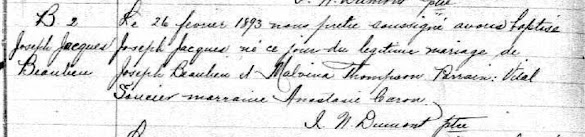 J. N. Dumont ptre
B 2
Joseph Jacques
Beaulieu
Le 26 fevrier 1893 nous pretre soussigné avons baptisé
Joseph Jacques né ce jour du legitime mariage de
Joseph Beaulieu et Malvina Thompson Parrain: Vital
Soucier marraine Anastasie Caron
J. N. Dumont ptre